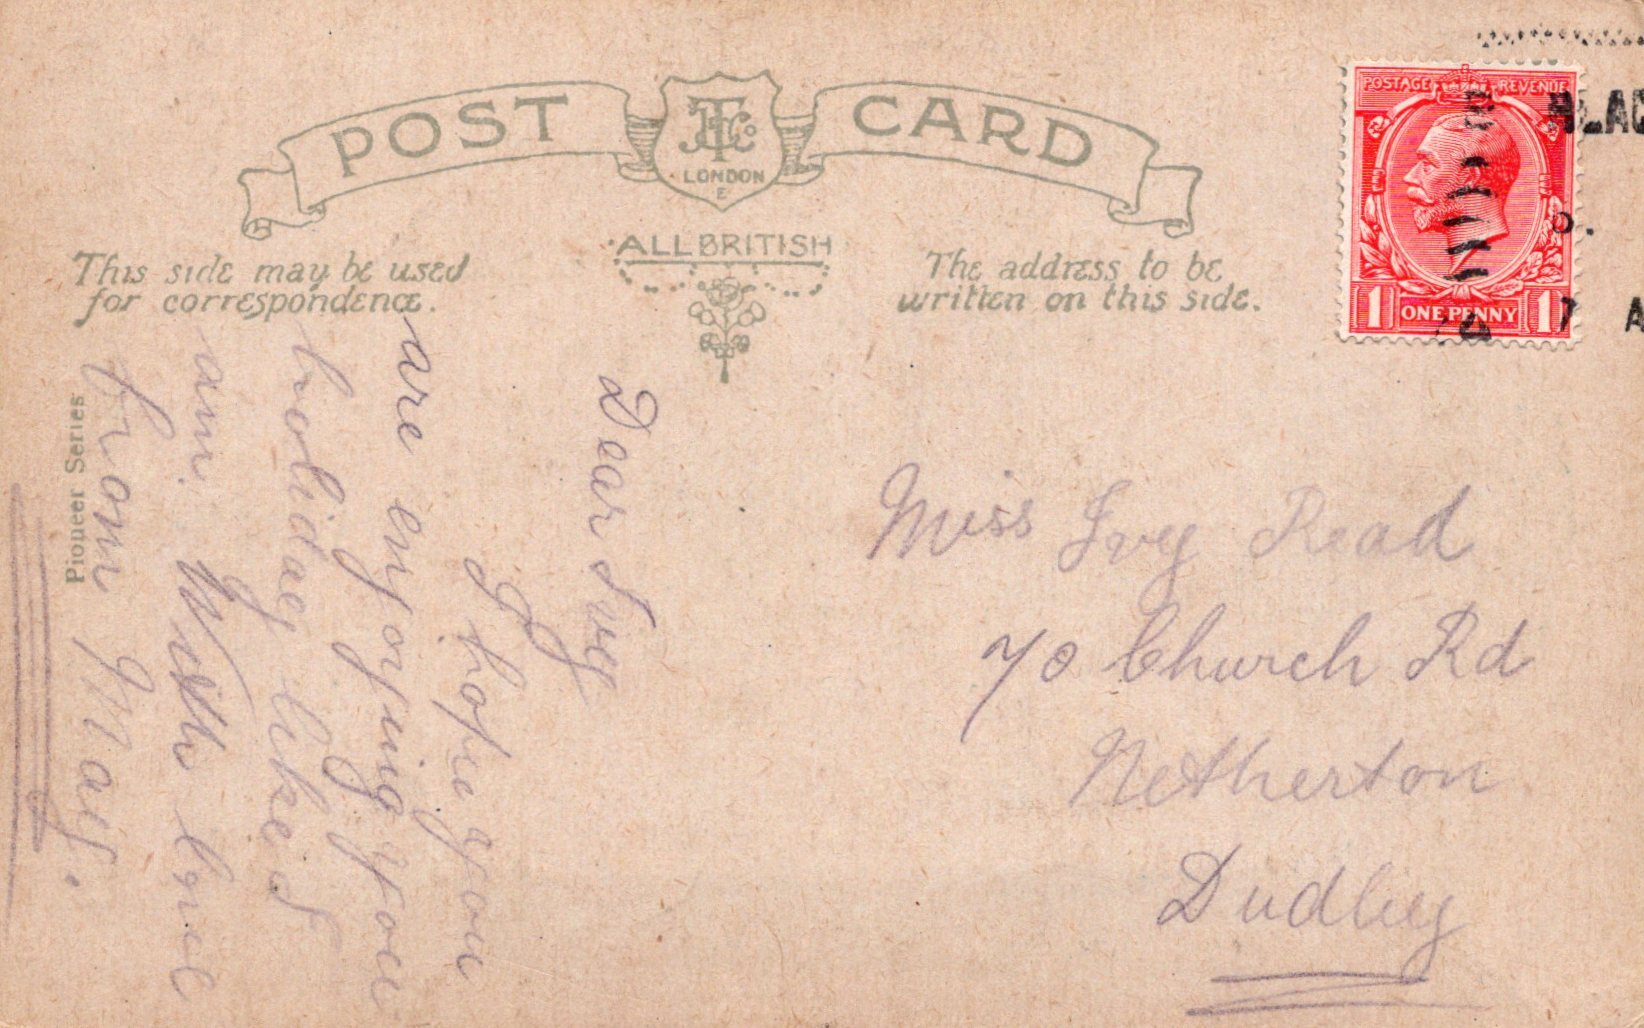 POST CARD
LONDON
E
ALL BRITISH
This side may be used
for correspondence.
The address to be
written on this side.
POSTAGE REVENUE
1 ONE PENNY 1
LAC
7 A
Pioneer Series
Dear Ivy
I hope you
are enjoying you
holiday liked
am. With love
from May.
Miss Ivy Read
70 Church Rd
Netherton
Dudley